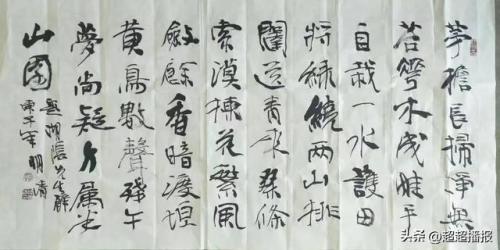 茅檐長掃淨無
苔花木成畦手
自栽一水護田
將綠繞兩山排
闥送青來桑條
索漠楝花繁風
斂餘香暗渡垣
黃鳥數聲殘午
夢尚疑身屬半
山園
湖陰先生壁
庚子年 明清
头条 @超超播报